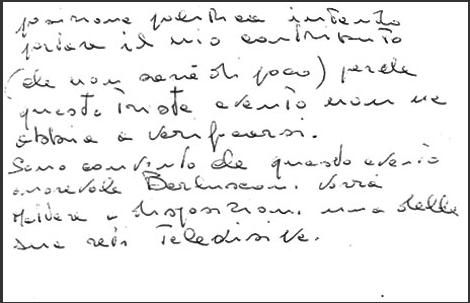 posizione politica intendo
portare il mio contributo
(che non sarà di poco) perche
questo triste evento non ne
abbia a verificarsi.
Sono convinto che questo evento
onorevole Berlusconi vorrà
mettere a disposizione una delle
sue reti Televisive.